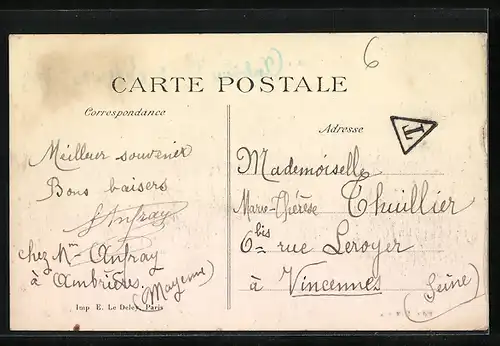 6
CARTE POSTALE
Correspondance
Adresse
T
Meilleur souvenir
Bons baisers
chez Mme
à Ambrières
(Mayenne)
Mademoiselle
Marie-Thérèse Thuillier
6 bis rue Leroyer
à Vincennes
(Seine)
Imp E. Le Deley, Paris